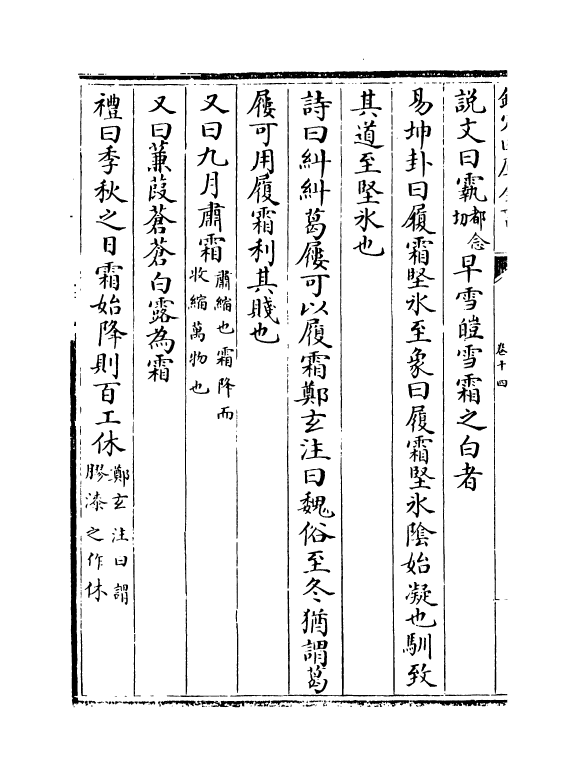 卷十四
説文曰霿都念切早雪皚雪霜之白者
易坤卦曰履霜堅氷至象曰履霜堅氷隂始凝也馴致
其道至堅氷也
詩曰糾糾葛屨可以履霜鄭玄注曰魏俗至冬猶謂葛
屨可用履霜利其賤也
又曰九月肅霜肅縮也霜降而收縮萬物也
又曰蒹葭蒼蒼白露為霜
禮曰季秋之日霜始降則百工休鄭玄注曰謂膠漆之作休